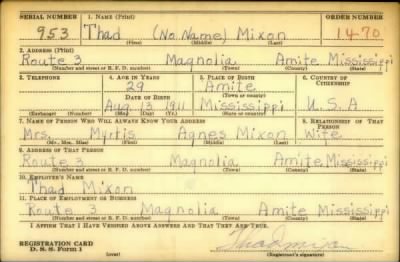 SERIAL NUMBER 1. NAME (Print) ORDER NUMBER
953 Thad (No Name) Mixon 1470
(First) (Middle) (Last)
2. ADDRESS (Print)
Route 3 Magnolia Amite Mississippi
(Number and street or R. F. D. number) (Town) (County) (State)
3. TELEPHONE 4. AGE IN YEARS 5. PLACE OF BIRTH 6. COUNTRY OF CITIZENSHIP
29 Amite
DATE OF BIRTH (Town or county)
Aug 13 1911 Mississippi U.S.A
(Exchange) (Number) (Mo.) (Day) (Yr.) (State or country)
7. NAME OF PERSON WHO WILL ALWAYS KNOW YOUR ADDRESS 8. RELATIONSHIP OF THAT PERSON
Mrs. Myrtis Agnes Mixon Wife
(Mr., Mrs., Miss) (First) (Middle) (Last)
9. ADDRESS OF THAT PERSON
Route 3 Magnolia Amite Mississippi
(Number and street or R. F. D. number) (Town) (County) (State)
10. EMPLOYER'S NAME
Thad Mixon
11. PLACE OF EMPLOYMENT OR BUSINESS
Route 3 Magnolia Amite Mississippi
(Number and street or R. F. D. number) (Town) (County) (State)
I AFFIRM THAT I HAVE VERIFIED ABOVE ANSWERS AND THAT THEY ARE TRUE.
REGISTRATION CARD
D. S. S. Form 1 (over) Thad mixon
(Registrant's signature)